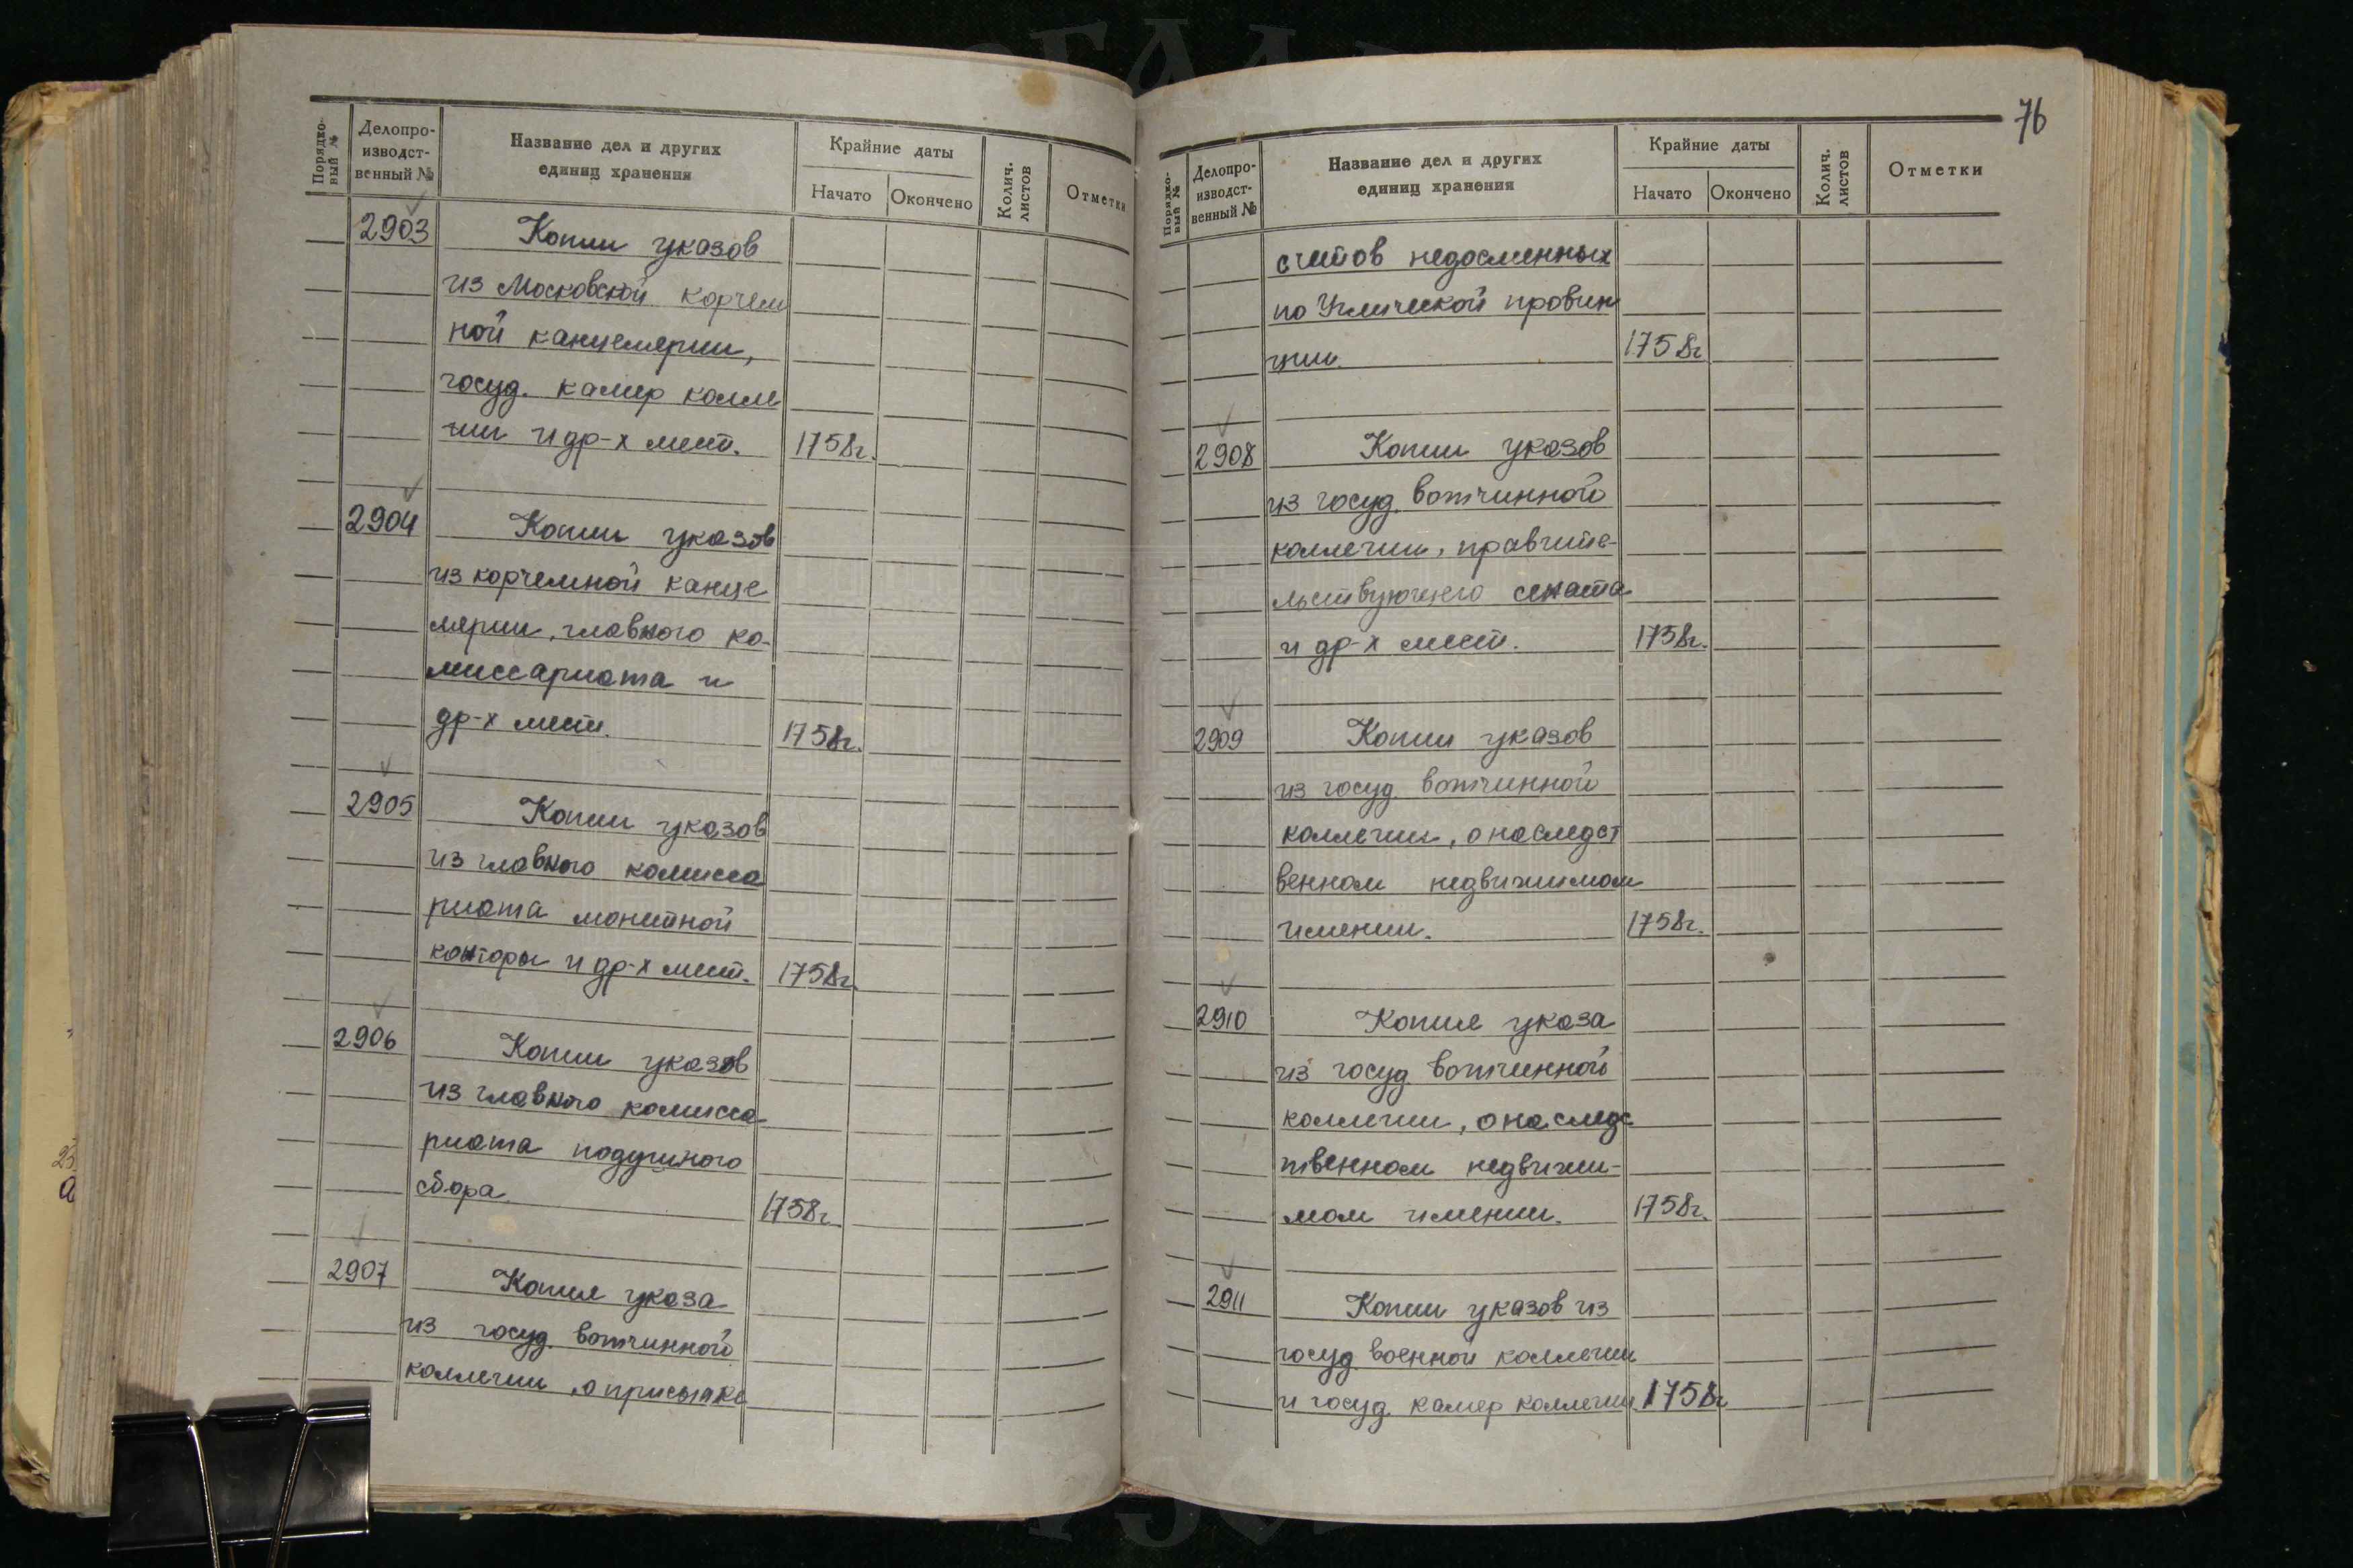 Порядко-
вый №
Делопро-
изводст-
венный №
Название дел и других
единиц хранения
Крайние даты
Начато
Окончено
Колич.
листов
Отметки
2903 Копии указов
из Московской корчем
ной канцелярии,
госуд. камер колле
гии и др-х мест. 1758г.
2904 Копии указов
из корчемной канце
лярии, главного ко-
миссариата и
др-х мест. 1758г.
2905 Копии указов
из главного комисса
риата монетной
конторы и др-х мест. 1758г.
2906 Копии указов
из главного комисса-
риата подушного
сбора 1758г.
2907 Копия указа
из госуд. вотчинной
коллегии, о присылке
76
Порядко-
вый №
Делопро-
изводст-
венный №
Название дел и других
единиц хранения
Крайние даты
Начато
Окончено
Колич.
листов
Отметки
счетов недосменных
по Углической провин
ции. 1758г
2908 Копии указов
из госуд. вотчинной
коллегии, правите-
льствующего сената
и др-х мест. 1758г.
2909 Копии указов
из госуд. вотчинной
коллегии, о наследст
венном недвижимом
имении. 1758г.
2910 Копия указа
из госуд. вотчинной
коллегии, о наследс
твенном недвижи-
мом имении. 1758г.
2911 Копии указов из
госуд. военной коллегии
и госуд. камер коллегии 1758г